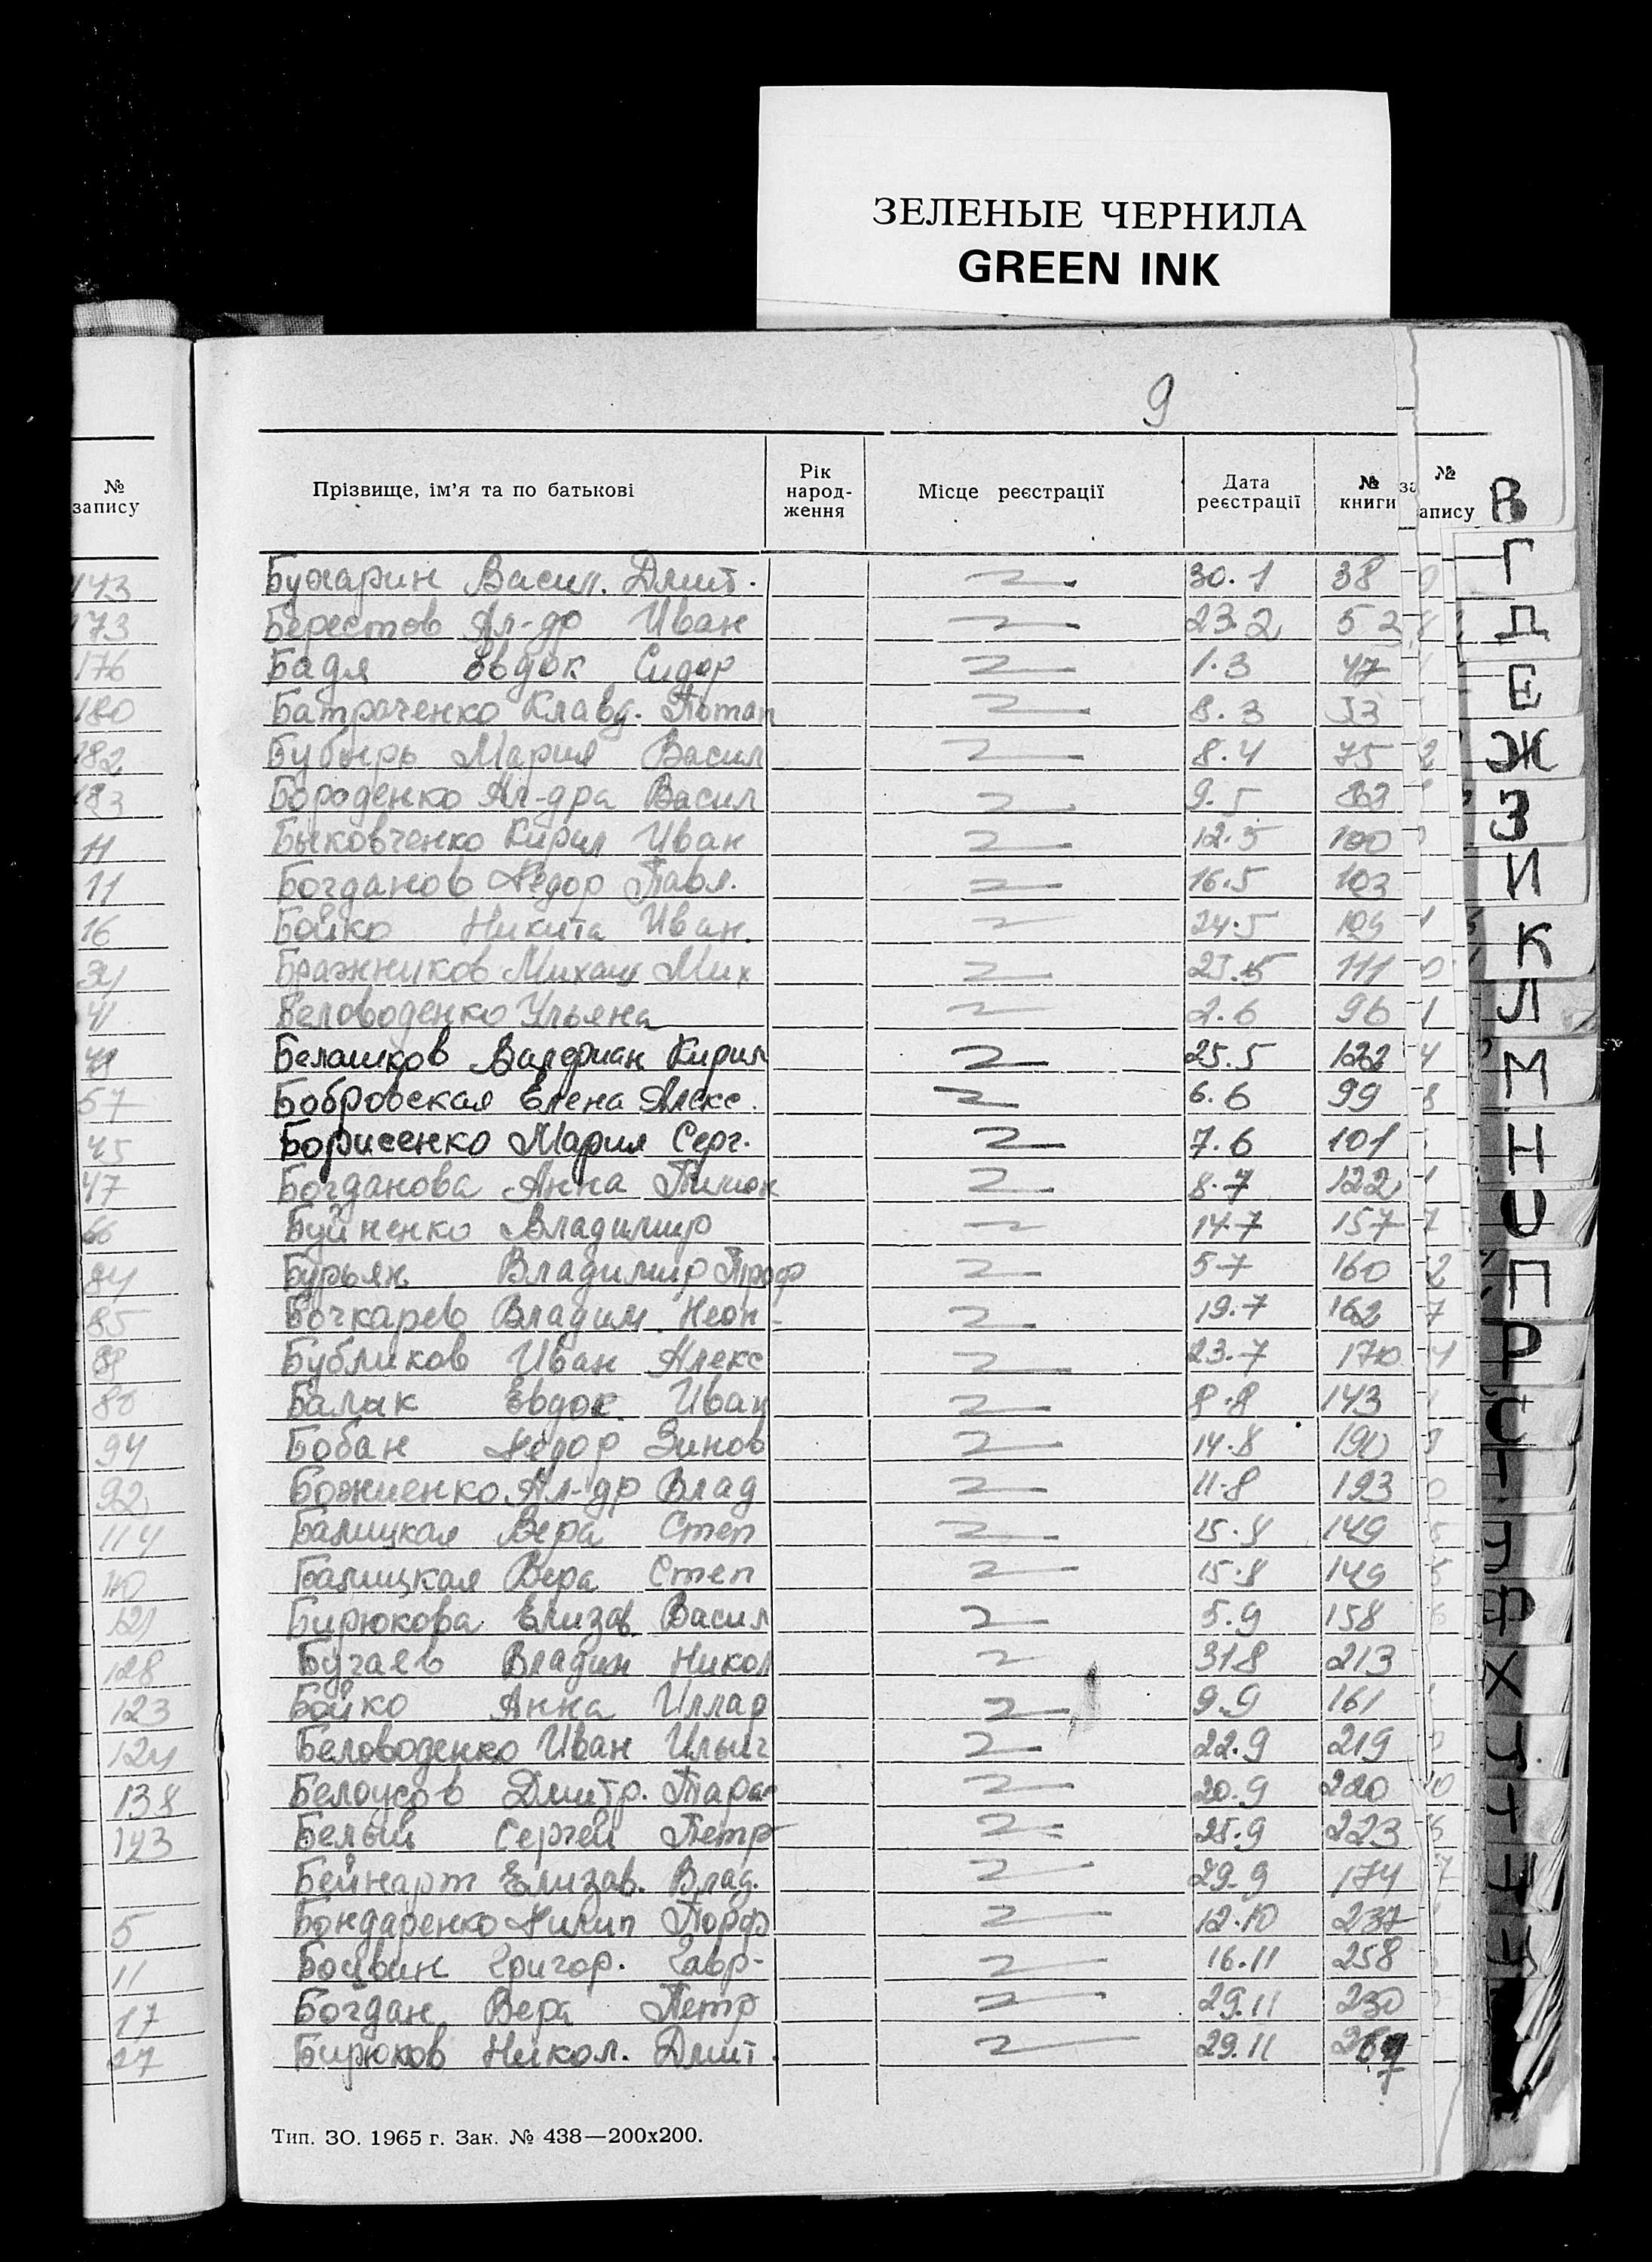 ЗЕЛЕНЫЕ ЧЕРНИЛА
GREEN INK
9
№ запису Прізвище, ім'я та по батькові Рік народ-ження Місце реєстрації Дата реєстрації № книги № запису
В
Г
Д
Е
Ж
З
И
К
Л
М
Н
О
П
Р
С
Х
143 Бужарин Васил. Дмит. 30.1 38
173 Берестов Ал-др Иван 23.2 53
176 Бадя Евдок Сидор 1.3 47
180 Батраченко Клавд. Потап 8.3 53
182 Бубырь Мария Васил 8.4 75
183 Бороденко Ал-дра Васил 9.5
11 Быковченко Кирил Иван 12.5 100
11 Богданов Фёдор Павл. 16.5 103
16 Бойко Никита Иван. 24.5 109
34 Бражников Михаил Мих 111
41 Беловоденко Ульяна 2.6 96
Белашков Валериан Кирил 25.5
57 Бобровская Елена Алекс. 6.6 99
45 Борисенко Мария Серг. 7.6 101
47 Богданова Анна Тимон 8.7 122
66 Буйненко Владимир 14.7 157
84 Бурьян Владимир Троф 5.7 160
85 Бочкарев Владим. 19.7 162
88 Бубликов Иван Алекс 23.7 170
Балык Евдок Иван 8.8 143
94 Бобан Фёдор Зинов 14.8 190
92 Божиенко Ал-др Влад 11.8 193
114 Балицкая Вера Степ 15.8 149
110 Балицкая Вера Степ 15.8 149
121 Бирюкова Елизав. Васил 5.9 158
128 Бугаев Владим Никол 31.8 213
123 Бойко Анна Иллар 9.9 161
124 Беловоденко Иван Ильич 22.9 219
138 Белоусов Дмитр. Тарас 20.9 220
143 Белый Сергей Петр 25.9 223
Бейнарт Елизав. Влад. 29.9 174
5 Бондаренко Филип Порф 12.10 237
11 Боцвин Григор. Гавр- 16.11 258
17 Богдан Вера Петр 29.11 230
27 Бирюков Никол. Дмит. 29.11
Тип. ЗО. 1965 г. Зак. № 438—200х200.